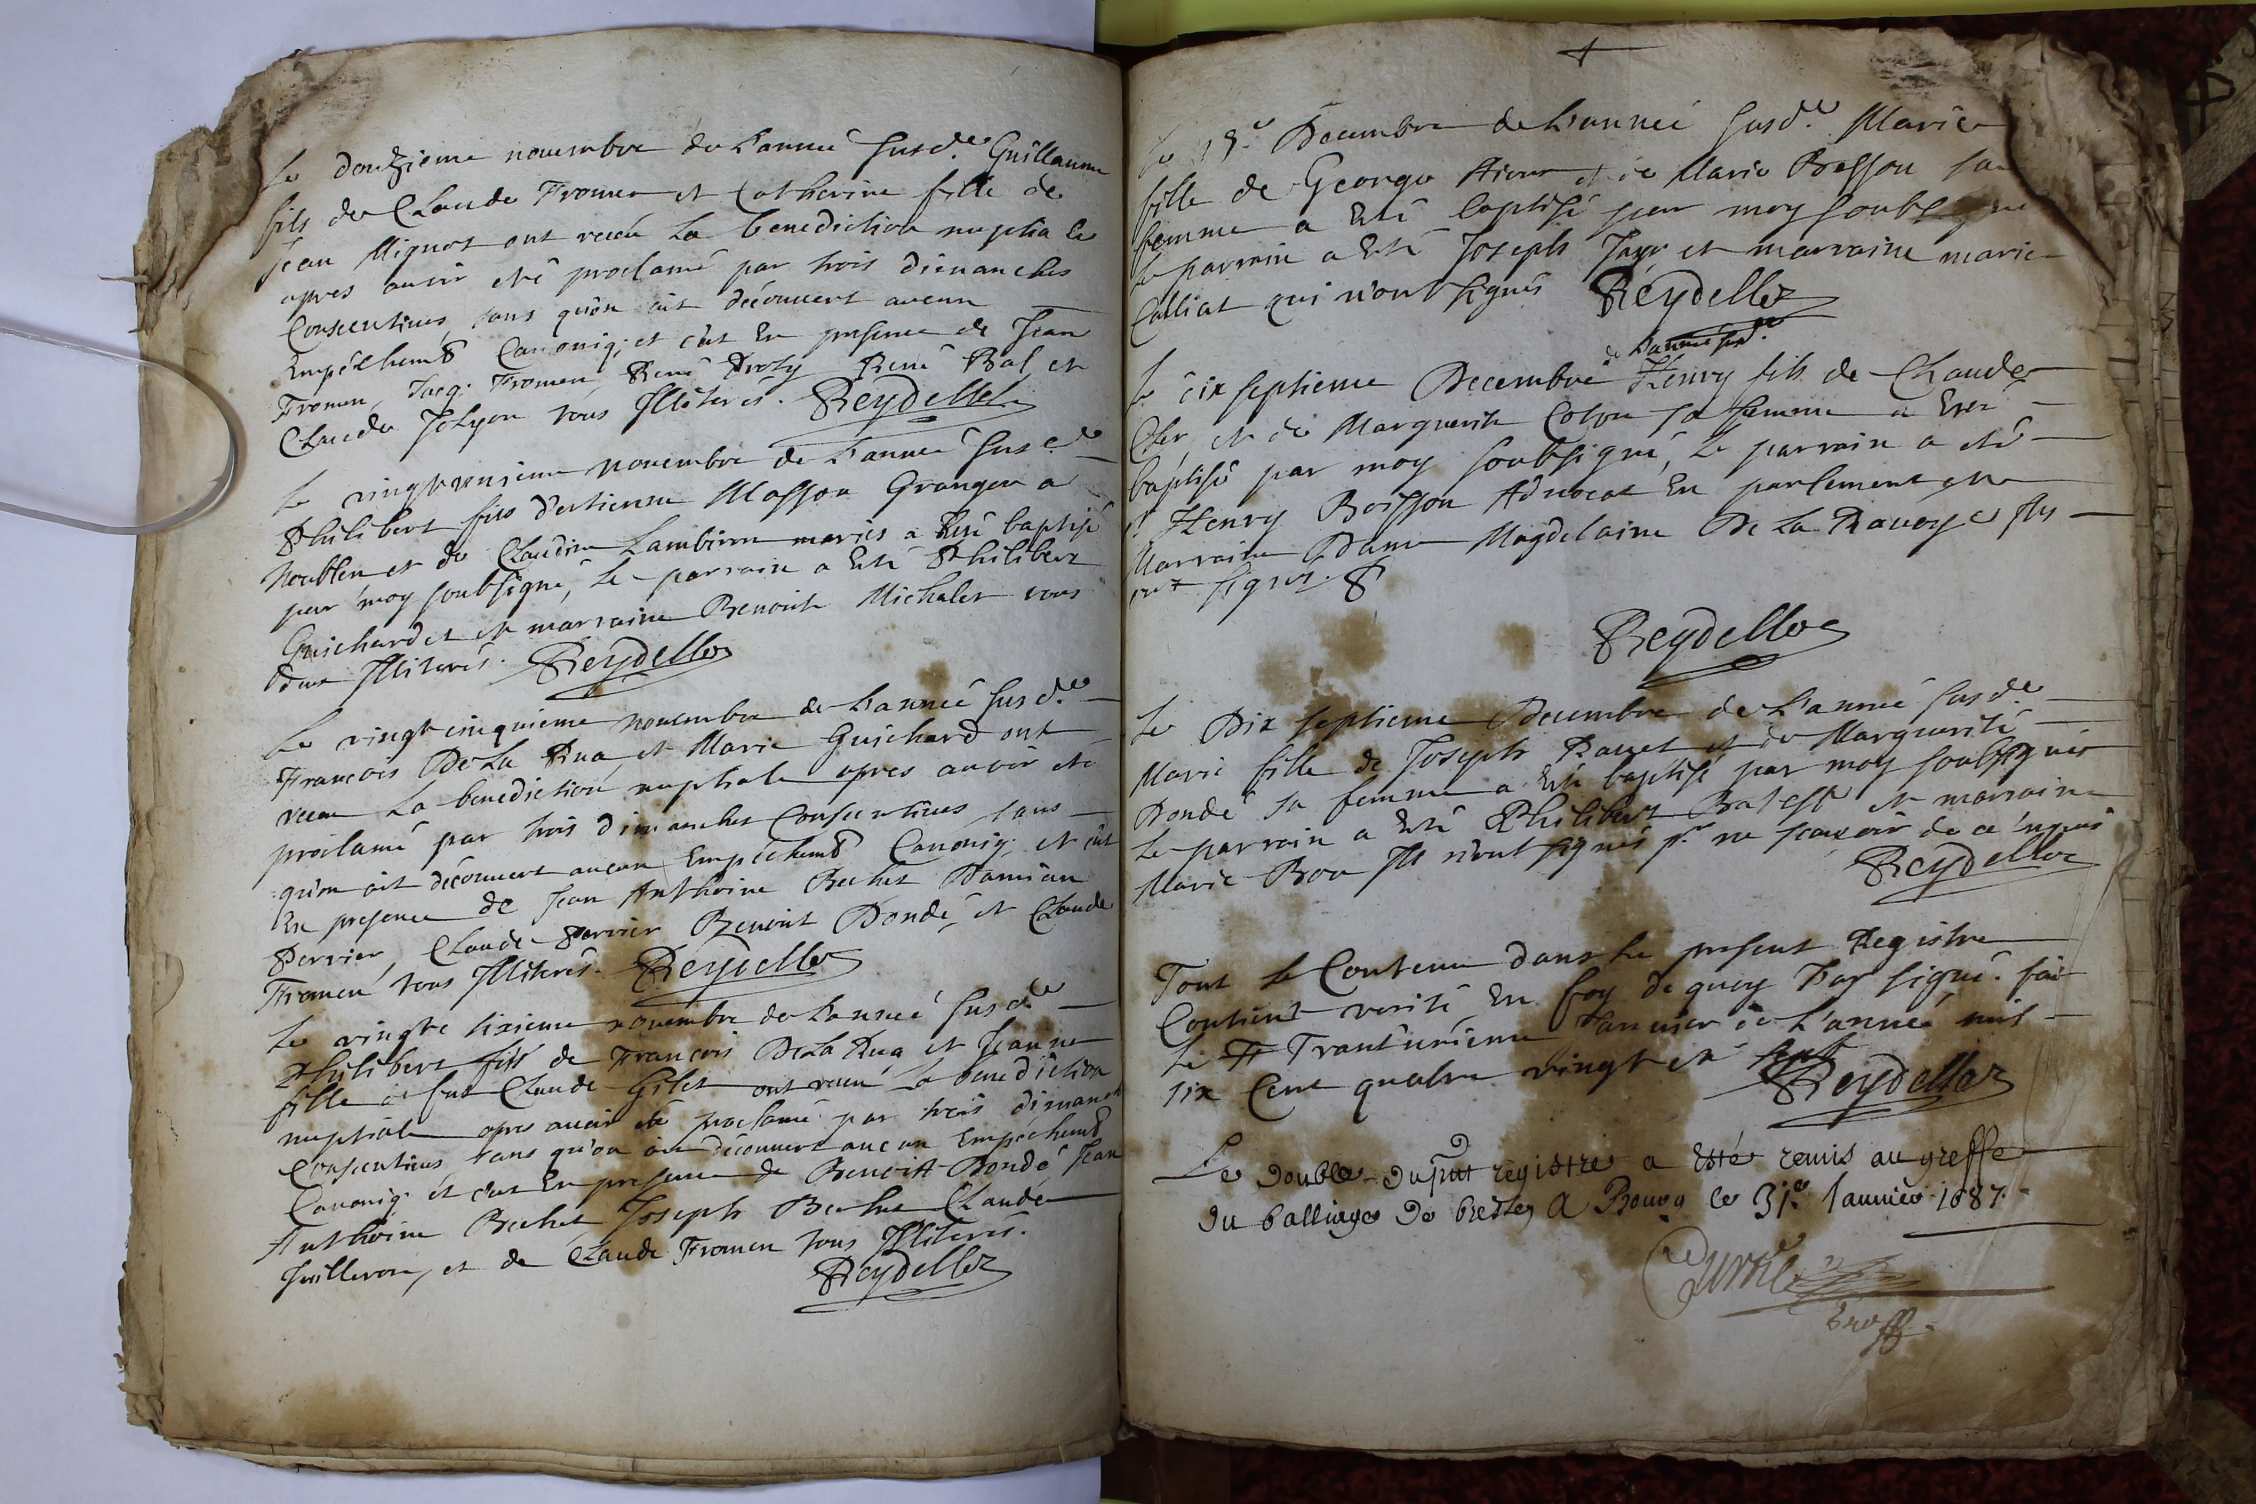 Le douzieme nouembre de L'année susd.e Guillaume
fils de Claude Fromen et Catherine fille de
Jean Mignot ont receu La benediction nuptiale
apres auoir eté proclamé par trois dimanches
Consecutiues, sans qu'on ait découuert aucun
Empéchem.t Canoniq; et c'est En presence de Jean
Fromen, Jacq. Fromen, René Rene Bal, et
Claude Tous Illiterés. Reydellet
Le nouembre de L'année susd.e
Philibert fils d'estienne Masson Granger a
et de Claudine Lambinne mariés a Eté baptisé
par moy soubsigné, Le parrain a Eté Philibert
Guichardet et marraine Benoite Michalet tous
deux Illiterés. Reydellet
Le vingt cinquieme nouembre de L'année susd.e
Francois De La Rua, et Marie Guichard ont
receu La benediction nuptiale apres auoir eté
proclamé par trois dimanches Consecutiues sans
qu'on ait découuert aucun Empéchem.t Canoniq; et c'est
En presence de Jean Anthoine Bechet Damian
Perrier, Claude Perrier Benoit Dondé, et Claude
Fromen tous Illiterés. Reydellet
Le vingt sixieme nouembre de L'année susd.e
Philibert fils de Francois De La Rua et Jeanne
fille de feu Claude Gilet ont receu La benediction
nuptiale apres auoir eté proclamé par trois dimanch
Consecutiues, sans qu'on ait découuert aucun Empéchem.t
Canoniq. et c'est En presence de Benoist Dondé Jean
Anthoine Bechet Joseph Bechet Claude
Juilleron, et de Claude Fromen tous Illiterés.
Reydellet
Le Decembre de L'année susd.e Marie
fille de George et de Marie Besson sa
femme a Eté baptisé par moy soubsigné
Le parrain a Eté Joseph Jayr et marraine marie
Calliat qui n'ont signés Reydellet
de L'année susd.e
Le dix septieme Decembre Henry fils de Claude
Cler, et de Marguerite Colon sa femme a Eté
baptisé par moy soubsigné, Le parrain a eté
Henry Boisson Aduocat En parlement et
Marraine Dame Magdelaine De La
ont signés.
Reydellet
Le Dix septieme Decembre de L'année susd.e
Marie fille de Joseph et de Marguerite
Dondé sa femme a Eté baptisé par moy soubsigné
Le parrain a Eté Philibert et marraine
Marie Bon Ils n'ont signés p.r ne scauoir de ce enquis
Reydellet
Tout Le Contenu dans Le present Registre
Contient verité En foy de quoy J'ay signé. fait
Le Trant'unieme Januier de L'année mil
six Cent quatre vingt et sept
Reydellet
Le double du p̃nt registre a esté remis au greffe
du balliage de bresse, A Bourg le 31.e Januier 1687.

greff.